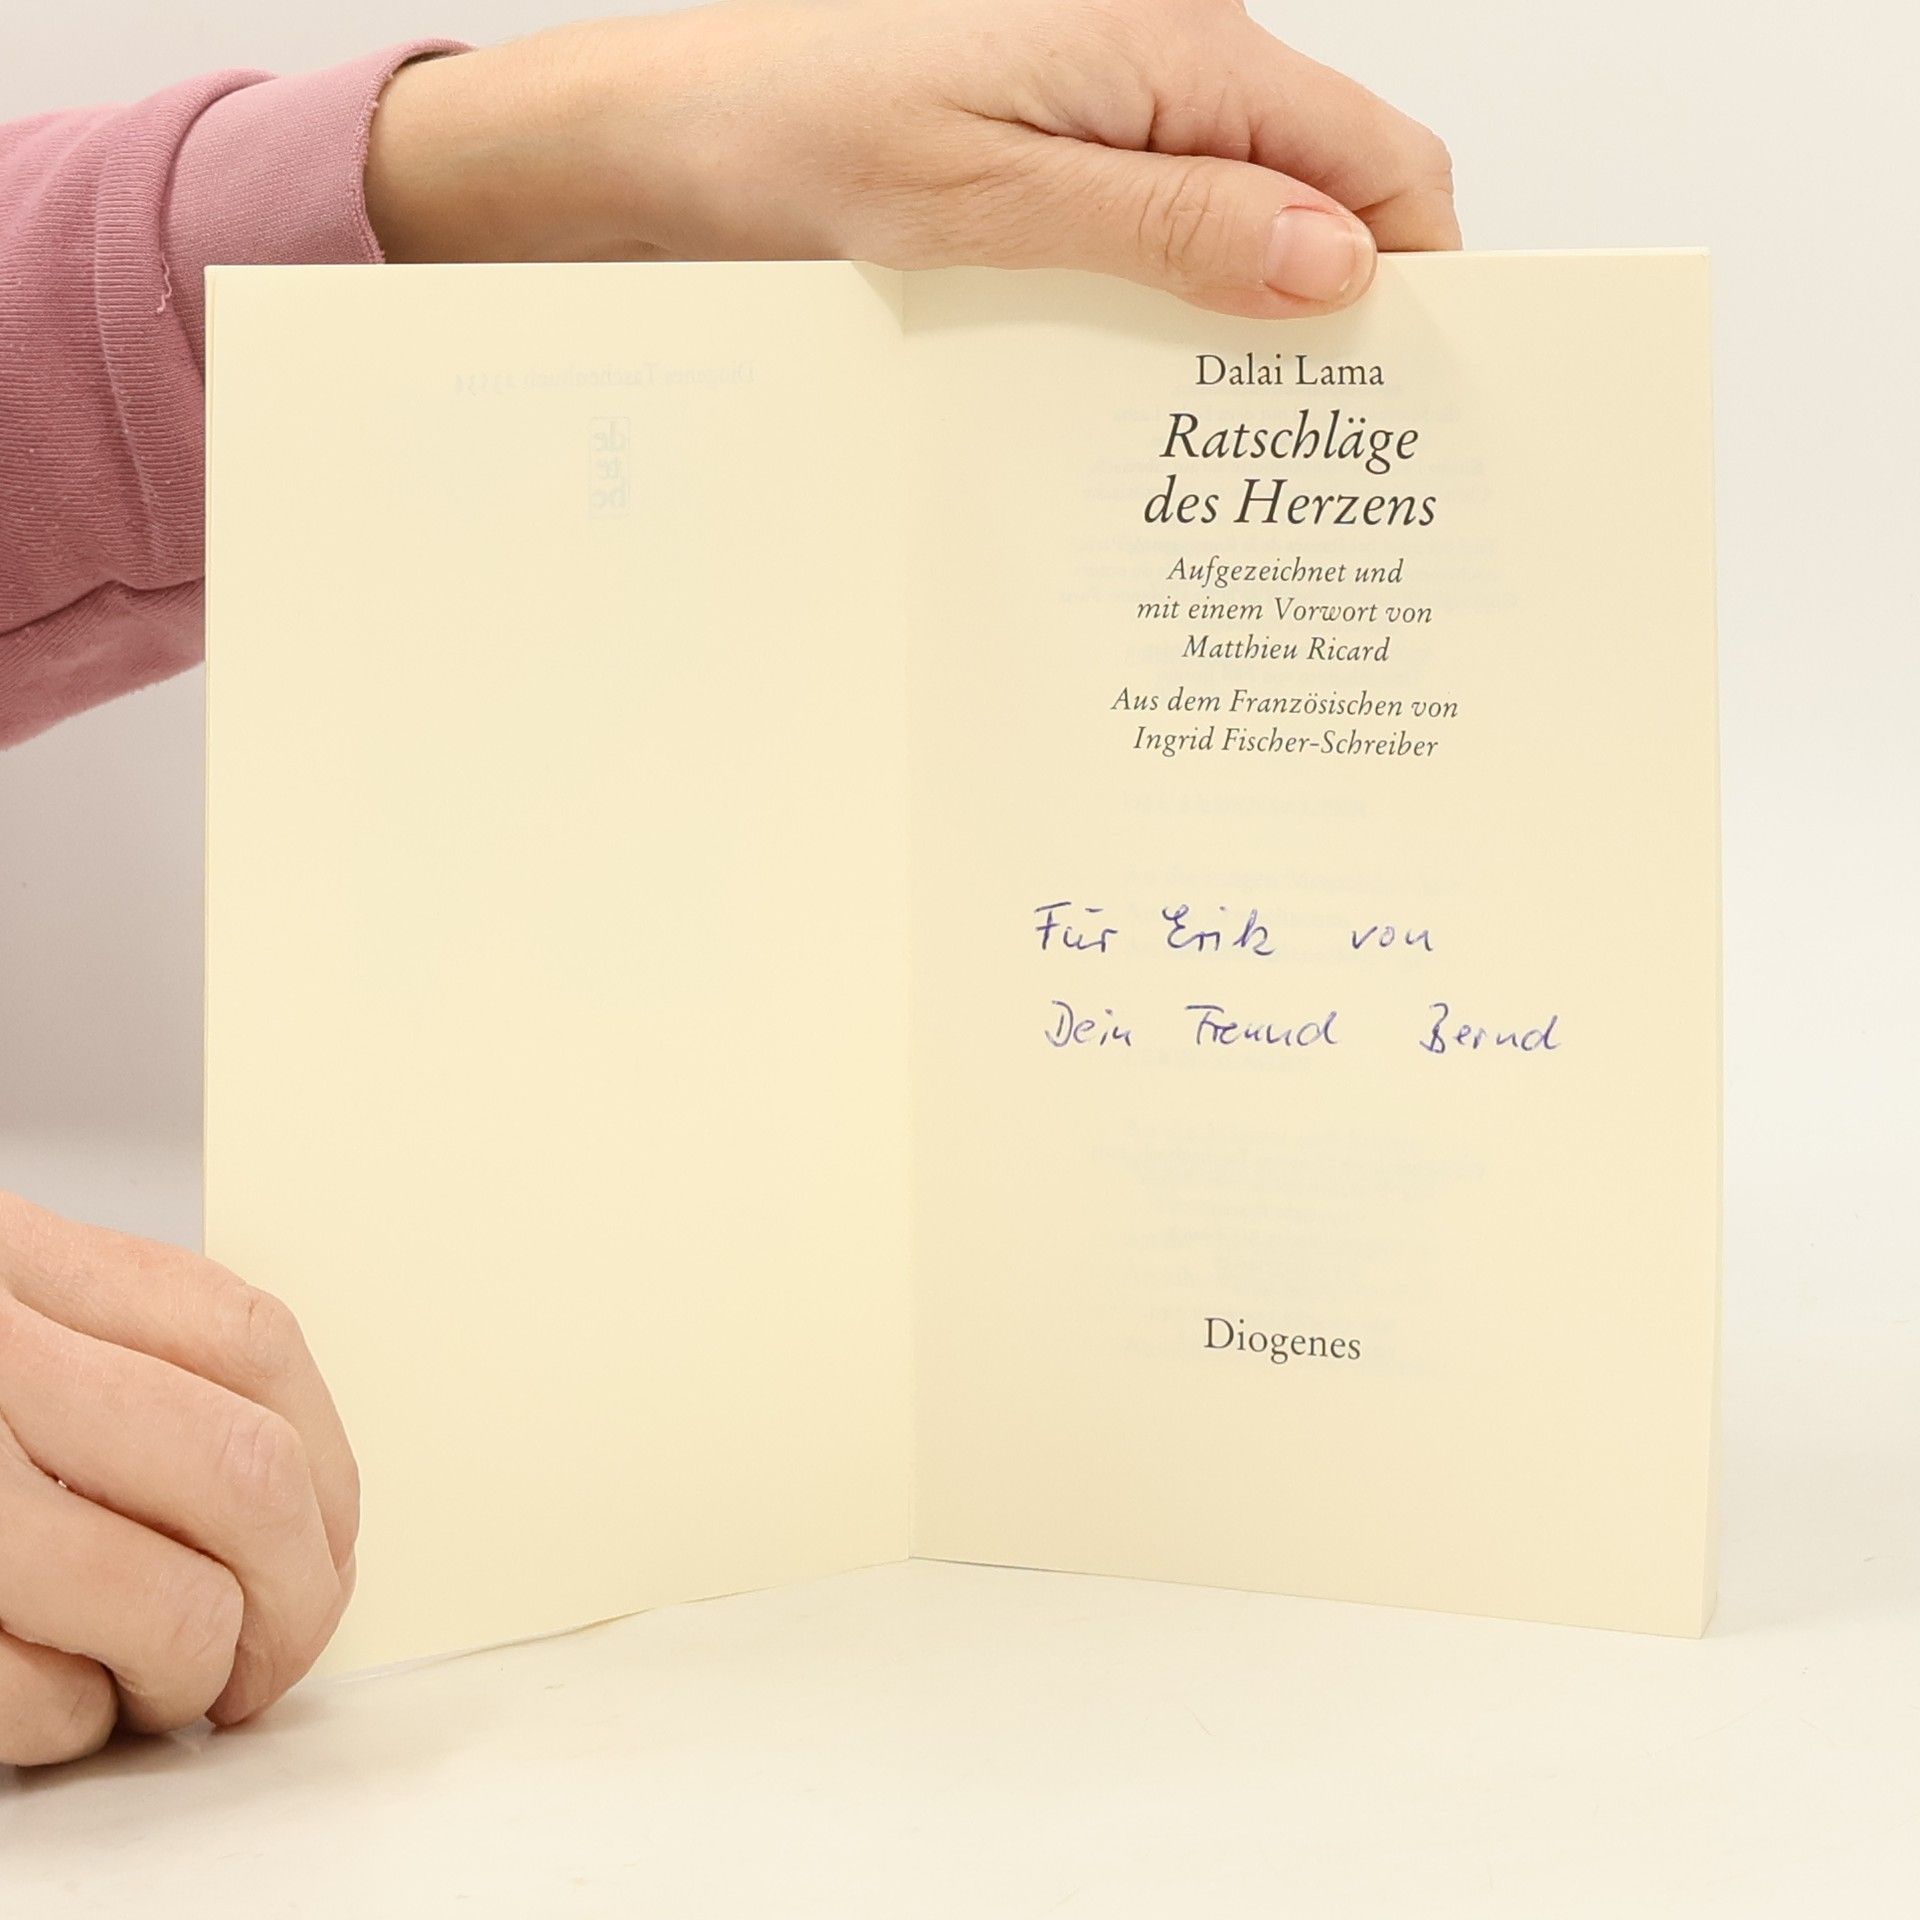 Dalai Lama
Ratschläge
des Herzens
Aufgezeichnet und
mit einem Vorwort von
Matthieu Ricard
Aus dem Französischen von
Ingrid Fischer-Schreiber
Für Erik von
Dein Freund Bernd
Diogenes